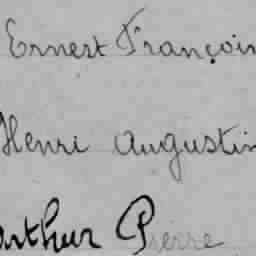 Ernest François
Henri Augustin
Arthur Pierre